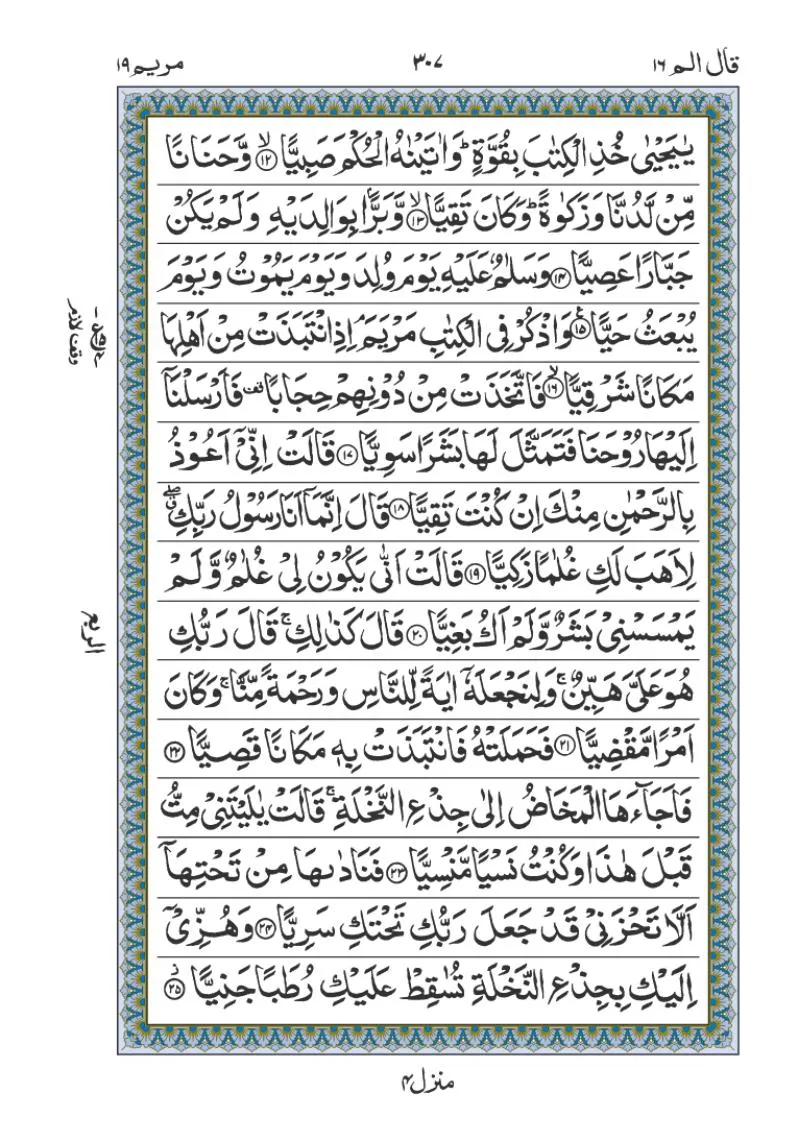 قال الم ١٦
٣٠٧
مريم ١٩
يٰيَحْيٰى خُذِ الْكِتٰبَ بِقُوَّةٍ ؕ وَاٰتَيْنٰهُ الْحُكْمَ صَبِيًّا ۙ‏﴿۱۲﴾ وَّحَنَانًا
مِّنْ لَّدُنَّا وَزَكٰوةً ؕ وَكَانَ تَقِيًّا ۙ‏﴿۱۳﴾ وَّبَرًّۢا بِوَالِدَيْهِ وَلَمْ يَكُنْ
جَبَّارًا عَصِيًّا ﴿۱۴﴾ وَسَلٰمٌ عَلَيْهِ يَوْمَ وُلِدَ وَيَوْمَ يَمُوْتُ وَيَوْمَ
يُبْعَثُ حَيًّا ﴿۱۵﴾ وَاذْكُرْ فِى الْكِتٰبِ مَرْيَمَ ۘ اِذِ انْتَبَذَتْ مِنْ اَهْلِهَا
مَكَانًا شَرْقِيًّا ۙ‏﴿۱۶﴾ فَاتَّخَذَتْ مِنْ دُوْنِهِمْ حِجَابًا قف فَاَرْسَلْنَاۤ
اِلَيْهَا رُوْحَنَا فَتَمَثَّلَ لَهَا بَشَرًا سَوِيًّا ﴿۱۷﴾ قَالَتْ اِنِّىْۤ اَعُوْذُ
بِالرَّحْمٰنِ مِنْكَ اِنْ كُنْتَ تَقِيًّا ﴿۱۸﴾ قَالَ اِنَّمَاۤ اَنَا رَسُوْلُ رَبِّكِ ۖ
لِاَهَبَ لَكِ غُلٰمًا زَكِيًّا ﴿۱۹﴾ قَالَتْ اَنّٰى يَكُوْنُ لِىْ غُلٰمٌ وَّلَمْ
يَمْسَسْنِىْ بَشَرٌ وَّلَمْ اَكُ بَغِيًّا ﴿۲۰﴾ قَالَ كَذٰلِكِ ۚ قَالَ رَبُّكِ
هُوَ عَلَىَّ هَيِّنٌ ۚ وَلِنَجْعَلَهٗۤ اٰيَةً لِّلنَّاسِ وَرَحْمَةً مِّنَّا ۚ وَكَانَ
اَمْرًا مَّقْضِيًّا ﴿۲۱﴾ فَحَمَلَتْهُ فَانْتَبَذَتْ بِهٖ مَكَانًا قَصِيًّا ﴿۲۲﴾
فَاَجَآءَهَا الْمَخَاضُ اِلٰى جِذْعِ النَّخْلَةِ ۚ قَالَتْ يٰلَيْتَنِىْ مِتُّ
قَبْلَ هٰذَا وَكُنْتُ نَسْيًا مَّنْسِيًّا ﴿۲۳﴾ فَنَادٰٮهَا مِنْ تَحْتِهَاۤ
اَلَّا تَحْزَنِىْ قَدْ جَعَلَ رَبُّكِ تَحْتَكِ سَرِيًّا ﴿۲۴﴾ وَهُزِّىْۤ
اِلَيْكِ بِجِذْعِ النَّخْلَةِ تُسٰقِطْ عَلَيْكِ رُطَبًا جَنِيًّا ﴿۲۵﴾
وقف لازم
الربع
منزل ۴